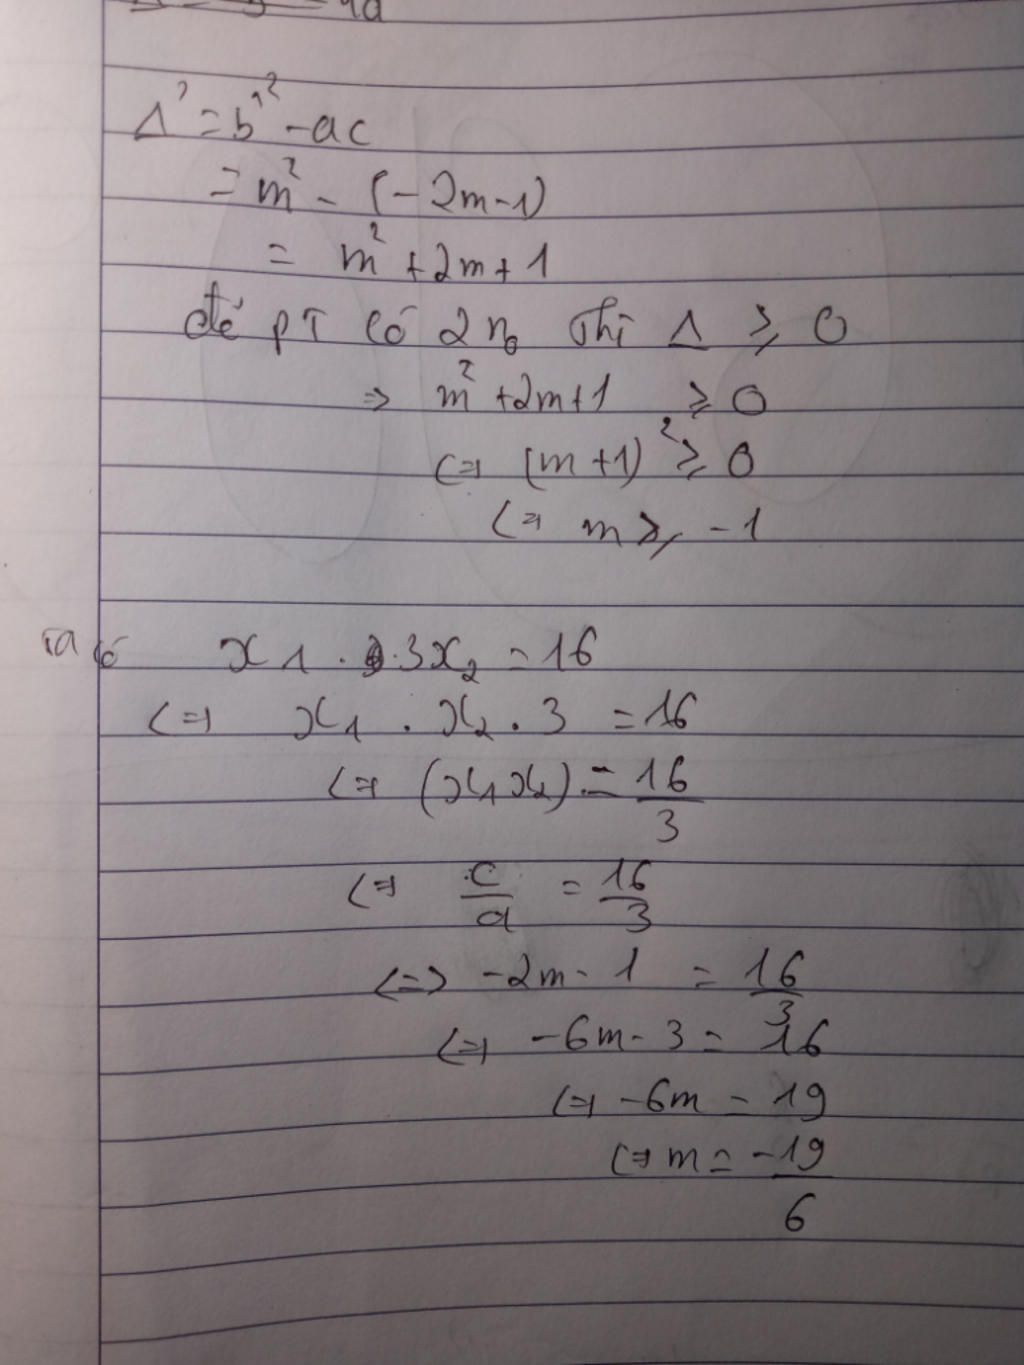 Δ' = b'² - ac
= m² - (-2m-1)
= m² + 2m + 1
để pT có 2n₀ thì Δ ≥ 0
⇒ m² + 2m + 1 ≥ 0
⇔ (m+1)² ≥ 0
⇔ m ≥ -1
Ta có x1 . 3x₂ = 16
⇔ x₁ . x₂ . 3 = 16
⇔ (x₁x₂) = 16/3
⇔ c/a = 16/3
⇔ -2m - 1 = 16/3
⇔ -6m - 3 = 16
⇔ -6m = 19
⇔ m = -19/6